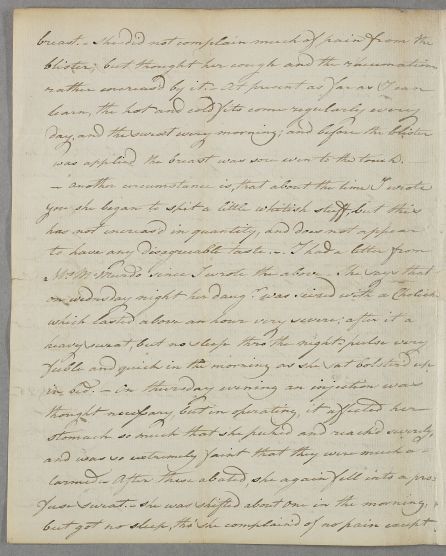 breast. - She did not complain much of pain from the
blister; but thought her cough and the rheumatism
rather increas'd by it. - At present as far as I can
learn, the hot and cold fits come regularly every
day, and the sweat every morning; and before the blister
was applied the breast was sore even to the touch. -
- Another circumstance is, that about the time I wrote
you, she began to spit a little whitish stuff, but this
has not increas'd in quantity, and does not appear
to have any disagreeable taste. - I had a letter from
since I wrote the above - He says that
on wednesday night her daugr. was seized with a Cholick
which lasted above an hour very severe; after it a
heavy sweat, but no sleep thro the night; pulse very
feeble and quick in the morning as she sat bolsterd up
in bed. - On thursday evening an injection was
thought necessary, but in operating, it affected her
stomach so much that she puked and reached severely,
and was so extremely faint that they were much a-
larmed. - After these abated, she again fell into a pro-
fuse sweat. - she was shifted about one in the morning,
but got no sleep, tho' she complained of no pain except